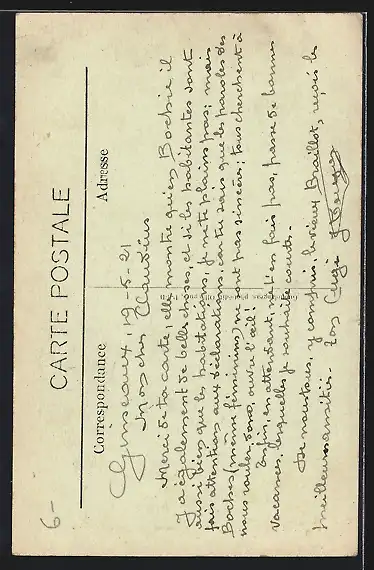 CARTE POSTALE
Correspondance
Adresse
6-
Guiseaux, 19-5-21
Mon cher Claudius
Merci de ta carte, elle montre qu'en Bochie il
y a également de belles choses, et si les habitantes sont
aussi bien que les habitations, je ne te plains pas; mais
fais attention aux déclarations, car tu sais que les paroles des
Boches (même féminins) ne sont pas sincères; tous cherchent à
nous rouler donc, ouvre l'œil!
Enfin, en attendant, ne t'en fais pas, passe de bonnes
vacances, lesquelles je souhaite courtes.
De nous tous, y compris le vieux Braillot, reçois les
meilleures amitiés. Ton